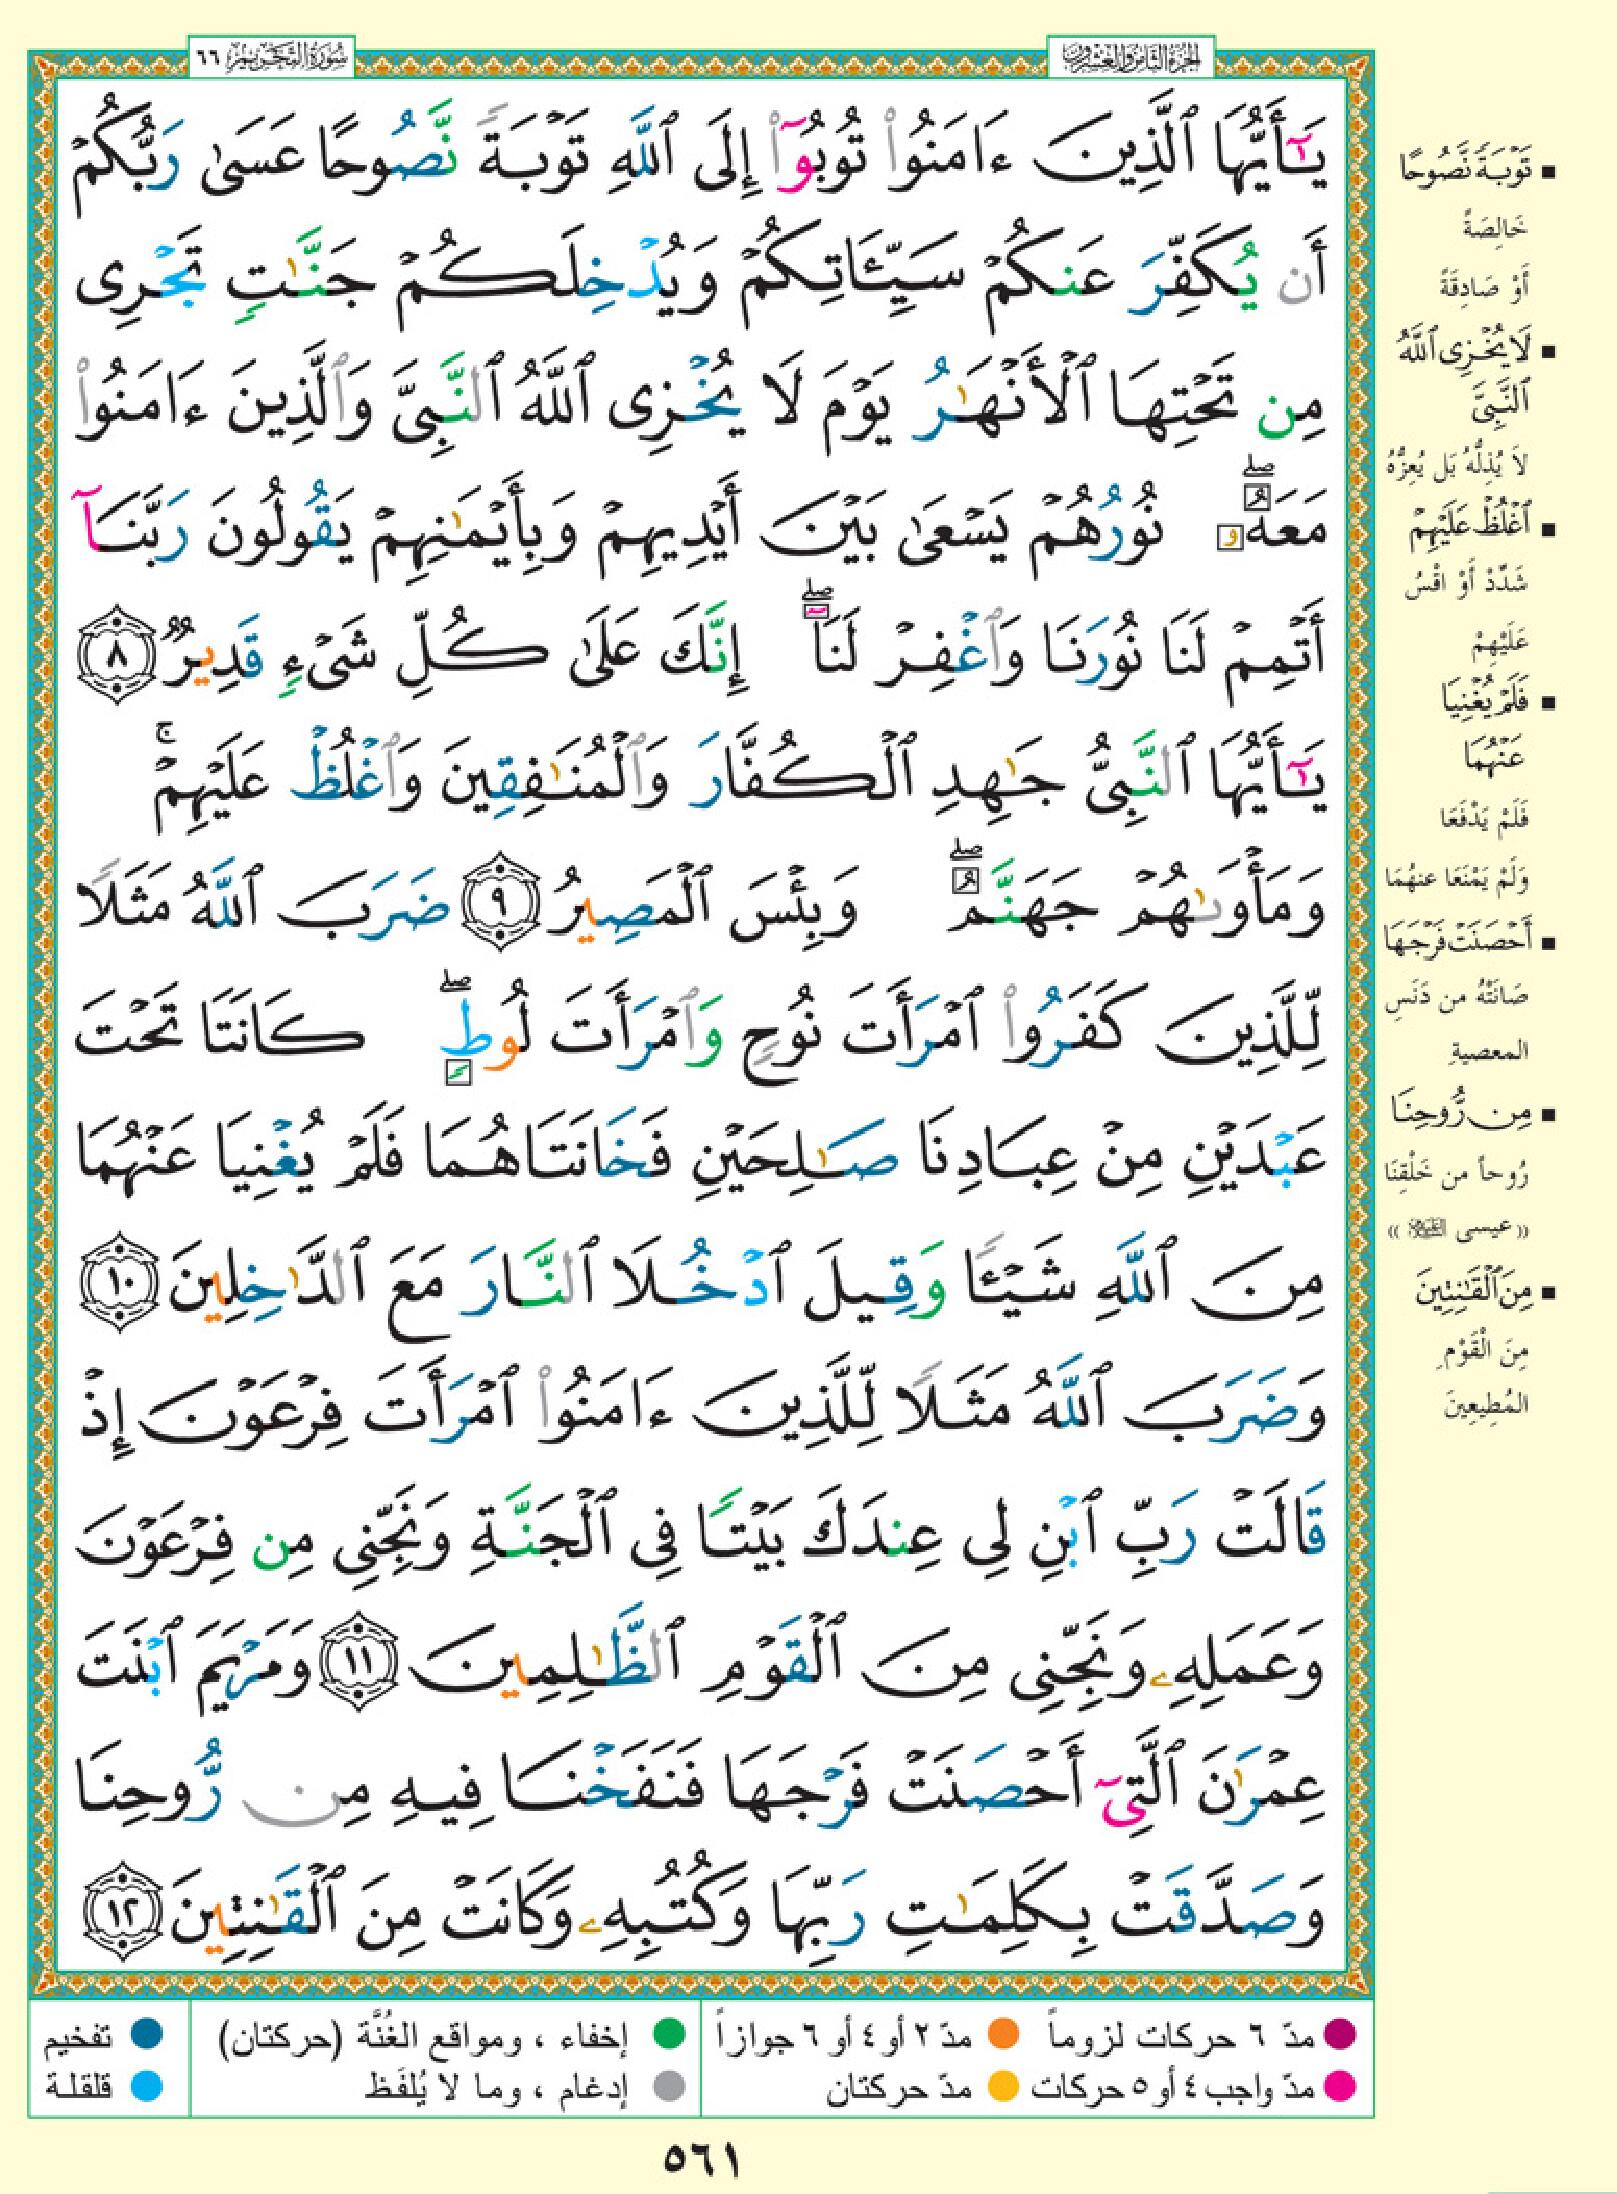 الجزء الثامن والعشرون
سورة التحريم ٦٦
يَـٰٓأَيُّهَا ٱلَّذِينَ ءَامَنُوا۟ تُوبُوٓا۟ إِلَى ٱللَّهِ تَوْبَةً نَّصُوحًا عَسَىٰ رَبُّكُمْ
أَن يُكَفِّرَ عَنكُمْ سَيِّـَٔاتِكُمْ وَيُدْخِلَكُمْ جَنَّـٰتٍ تَجْرِى
مِن تَحْتِهَا ٱلْأَنْهَـٰرُ يَوْمَ لَا يُخْزِى ٱللَّهُ ٱلنَّبِىَّ وَٱلَّذِينَ ءَامَنُوا۟
مَعَهُۥ ۖ نُورُهُمْ يَسْعَىٰ بَيْنَ أَيْدِيهِمْ وَبِأَيْمَـٰنِهِمْ يَقُولُونَ رَبَّنَآ
أَتْمِمْ لَنَا نُورَنَا وَٱغْفِرْ لَنَآ ۖ إِنَّكَ عَلَىٰ كُلِّ شَىْءٍ قَدِيرٌ ٨
يَـٰٓأَيُّهَا ٱلنَّبِىُّ جَـٰهِدِ ٱلْكُفَّارَ وَٱلْمُنَـٰفِقِينَ وَٱغْلُظْ عَلَيْهِمْ ۚ
وَمَأْوَىٰهُمْ جَهَنَّمُ ۖ وَبِئْسَ ٱلْمَصِيرُ ٩ ضَرَبَ ٱللَّهُ مَثَلًا
لِّلَّذِينَ كَفَرُوا۟ ٱمْرَأَتَ نُوحٍ وَٱمْرَأَتَ لُوطٍ ۖ كَانَتَا تَحْتَ
عَبْدَيْنِ مِنْ عِبَادِنَا صَـٰلِحَيْنِ فَخَانَتَاهُمَا فَلَمْ يُغْنِيَا عَنْهُمَا
مِنَ ٱللَّهِ شَيْـًٔا وَقِيلَ ٱدْخُلَا ٱلنَّارَ مَعَ ٱلدَّٰخِلِينَ ١٠
وَضَرَبَ ٱللَّهُ مَثَلًا لِّلَّذِينَ ءَامَنُوا۟ ٱمْرَأَتَ فِرْعَوْنَ إِذْ
قَالَتْ رَبِّ ٱبْنِ لِى عِندَكَ بَيْتًا فِى ٱلْجَنَّةِ وَنَجِّنِى مِن فِرْعَوْنَ
وَعَمَلِهِۦ وَنَجِّنِى مِنَ ٱلْقَوْمِ ٱلظَّـٰلِمِينَ ١١ وَمَرْيَمَ ٱبْنَتَ
عِمْرَٰنَ ٱلَّتِىٓ أَحْصَنَتْ فَرْجَهَا فَنَفَخْنَا فِيهِ مِن رُّوحِنَا
وَصَدَّقَتْ بِكَلِمَـٰتِ رَبِّهَا وَكُتُبِهِۦ وَكَانَتْ مِنَ ٱلْقَـٰنِتِينَ ١٢
▪ تَوْبَةً نَّصُوحًا
خَالِصَةً
أَوْ صَادِقَةً
▪ لَا يُخْزِى ٱللَّهُ
ٱلنَّبِىَّ
لَا يُذِلُّهُ بَل يُعِزُّهُ
▪ ٱغْلُظْ عَلَيْهِمْ
شَدِّدْ أَوْ اقْسُ
عَلَيْهِمْ
▪ فَلَمْ يُغْنِيَا
عَنْهُمَا
فَلَمْ يَدْفَعَا
وَلَمْ يَمْنَعَا عنهُمَا
▪ أَحْصَنَتْ فَرْجَهَا
صَانَتْهُ من دَنَسِ
المعصيةِ
▪ مِن رُّوحِنَا
رُوحاً من خَلْقِنَا
(( عيسى ))
▪ مِنَ ٱلْقَـٰنِتِينَ
مِنَ الْقَوْمِ
المُطِيعِينَ
مدّ ٦ حركات لزوماً مدّ ٢ أو ٤ أو ٦ جوازاً إخفاء ، ومواقع الغُنَّة (حركتان) تفخيم
مدّ واجب ٤ أو ٥ حركات مدّ حركتان إدغام ، وما لا يُلفَظ قلقلة
٥٦١